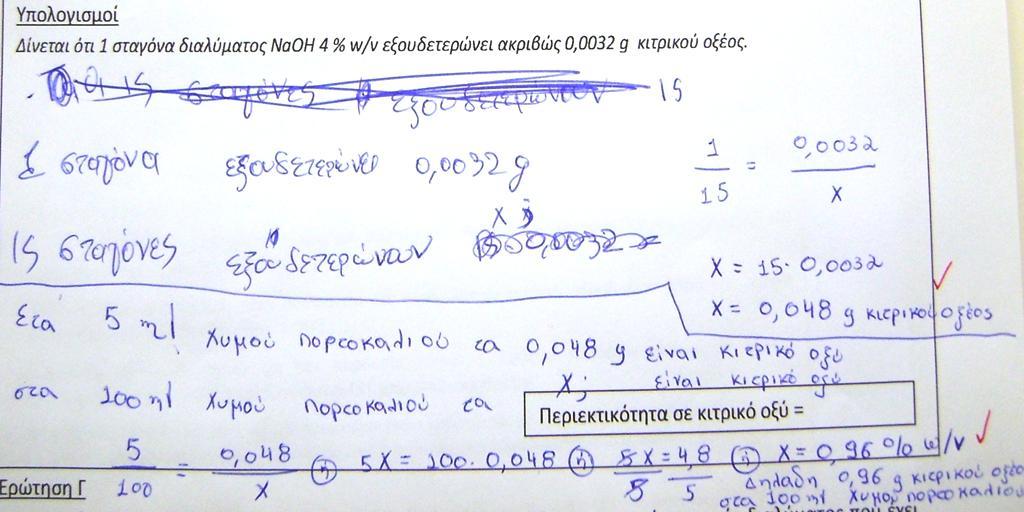 Υπολογισμοί
Δίνεται ότι 1 σταγόνα διαλύματος NaOH 4 % w/v εξουδετερώνει ακριβώς 0,0032 g κιτρικού οξέος.
15 σταγόνες εξουδετερώνουν 15
1 σταγόνα εξουδετερώνει 0,0032 g
1/15 = 0,0032/x
15 σταγόνες εξουδετερώνουν x;
x = 15 · 0,0032
x = 0,048 g κιτρικού οξέος
Στα 5 ml χυμού πορτοκαλιού τα 0,048 g είναι κιτρικό οξύ
στα 100 ml χυμού πορτοκαλιού τα x; είναι κιτρικό οξύ
Περιεκτικότητα σε κιτρικό οξύ =
5/100 = 0,048/x ή 5x = 100 · 0,048 ή 5x/5 = 4,8/5 ή x = 0,96 % w/v
Δηλαδή 0,96 g κιτρικού οξέος
στα 100 ml χυμού πορτοκαλιού
Ερώτηση Γ